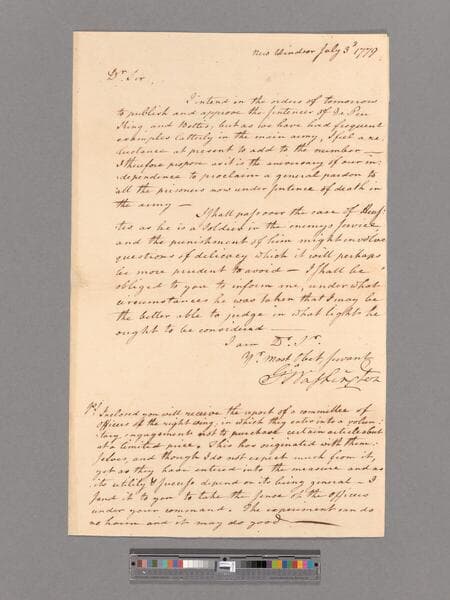 New Windsor July 3d 1779
Dr. Sir
I intend in the orders of tomorrow
to publish and approve the sentences of De Pew
King and Bettis, but as we have had frequent
examples latterly in the main army, I feel a re-
luctance at present to add to the number —
I therefore propose as it is the anniversary of our in-
dependence to proclaim a general pardon to
all the prisoners now under sentence of death in
the army —
I shall pass over the case of
as he is a Soldier in the enemys service
and the punishment of him might involve
questions of delicacy which it will perhaps
be more prudent to avoid — I shall be
obliged to you to inform me, under what
circumstances he was taken that I may be
the better able to judge in what light he
ought to be considered —
I am Dr. Sr.
Yr. most Obet. servant
Go. Washington
Ps. Inclosed you will receive the report of a committee of
officers of the right wing, in which they enter into a volun-
tary engagement not to purchase certain articles about
at a limited price. This has originated with them-
selves, and though I do not expect much from it,
yet as they have entered into the measure and as
its utility & success depend on its being general — I
send it to you to take the sense of the officers
under your command. The experiment can do
no harm and it may do good —